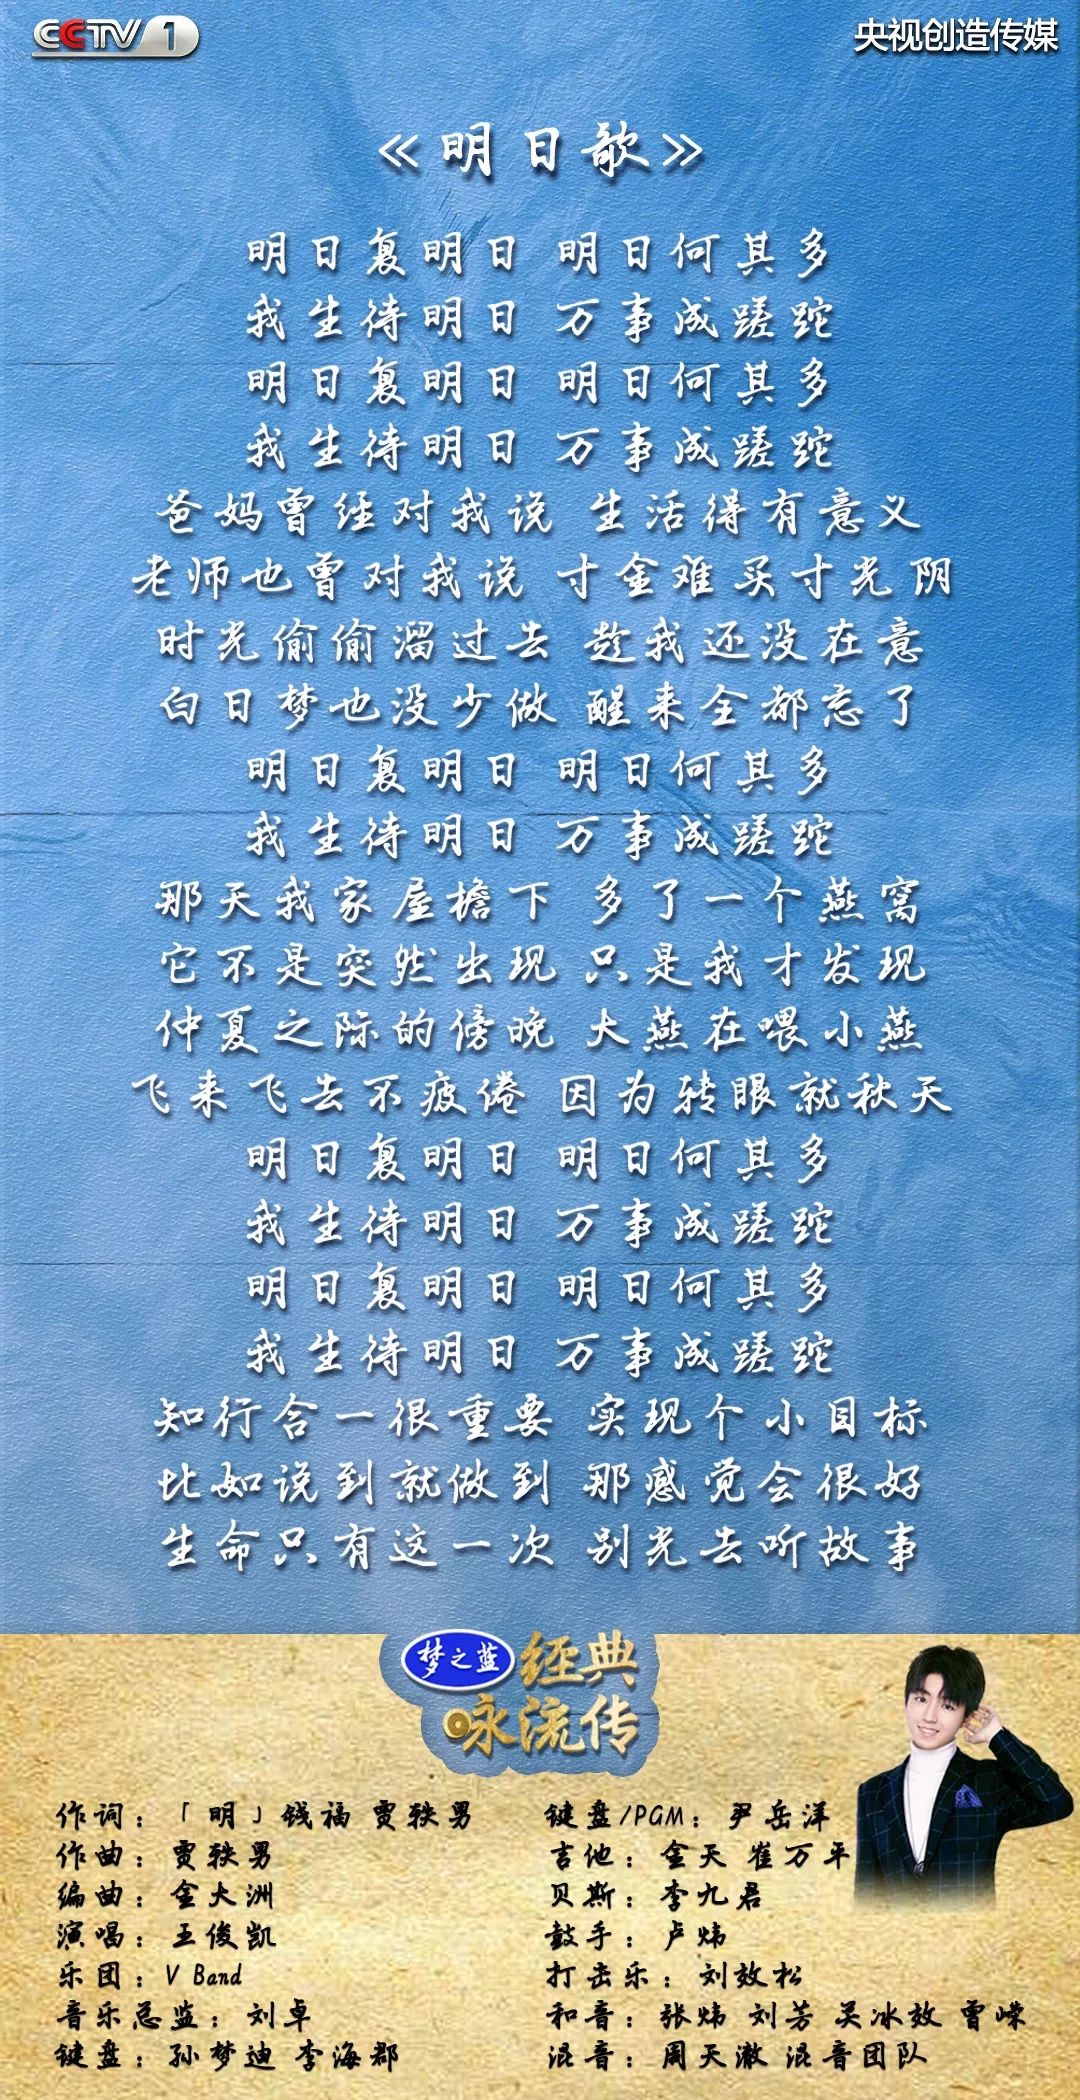 CCTV 1
央视创造传媒
《明日歌》
明日复明日 明日何其多
我生待明日 万事成蹉跎
明日复明日 明日何其多
我生待明日 万事成蹉跎
爸妈曾经对我说 生活得有意义
老师也曾对我说 寸金难买寸光阴
时光偷偷溜过去 趁我还没在意
白日梦也没少做 醒来全都忘了
明日复明日 明日何其多
我生待明日 万事成蹉跎
那天我家屋檐下 多了一个燕窝
它不是突然出现 只是我才发现
仲夏之际的傍晚 大燕在喂小燕
飞来飞去不疲倦 因为转眼就秋天
明日复明日 明日何其多
我生待明日 万事成蹉跎
明日复明日 明日何其多
我生待明日 万事成蹉跎
知行合一很重要 实现个小目标
比如说到就做到 那感觉会很好
生命只有这一次 别光去听故事
梦之蓝 经典
咏流传
作词：「明」钱福 贾轶男
作曲：贾轶男
编曲：金大洲
演唱：王俊凯
乐团：V Band
音乐总监：刘卓
键盘：孙梦迪 李海郡
键盘/PGM：尹岳洋
吉他：金天 崔万平
贝斯：李九君
鼓手：卢炜
打击乐：刘效松
和音：张炜 刘芳 吴冰效 曾嵘
混音：周天澈 混音团队